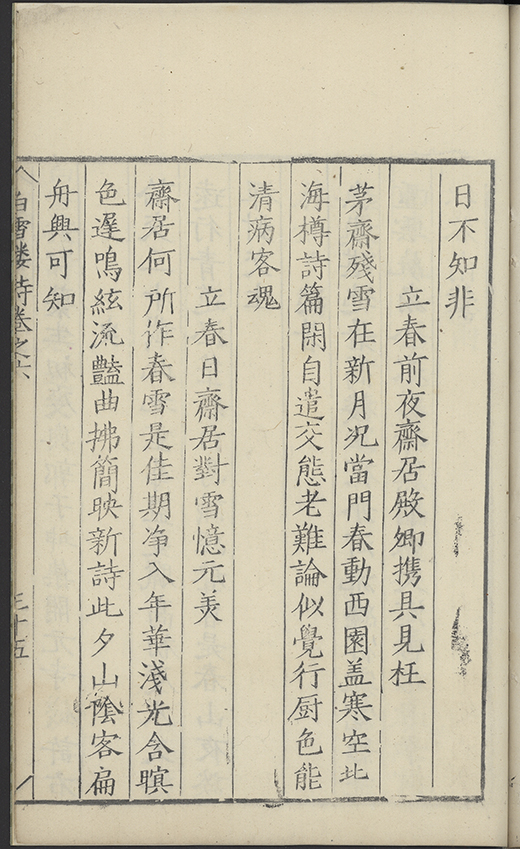 日不知非
立春前夜齋居殿卿攜具見枉
茅齋殘雪在新月況當門春動西園盖寒空北
海樽詩篇閑自遣交態老難論似覺行厨色能
清病客魂
立春日齋居對雪憶元美
齋居何所作春雪是佳期净入年華淺光含暝
色遲鳴絃流豔曲拂簡映新詩此夕山陰客扁
舟興可知
白雪樓詩卷之六
三十五